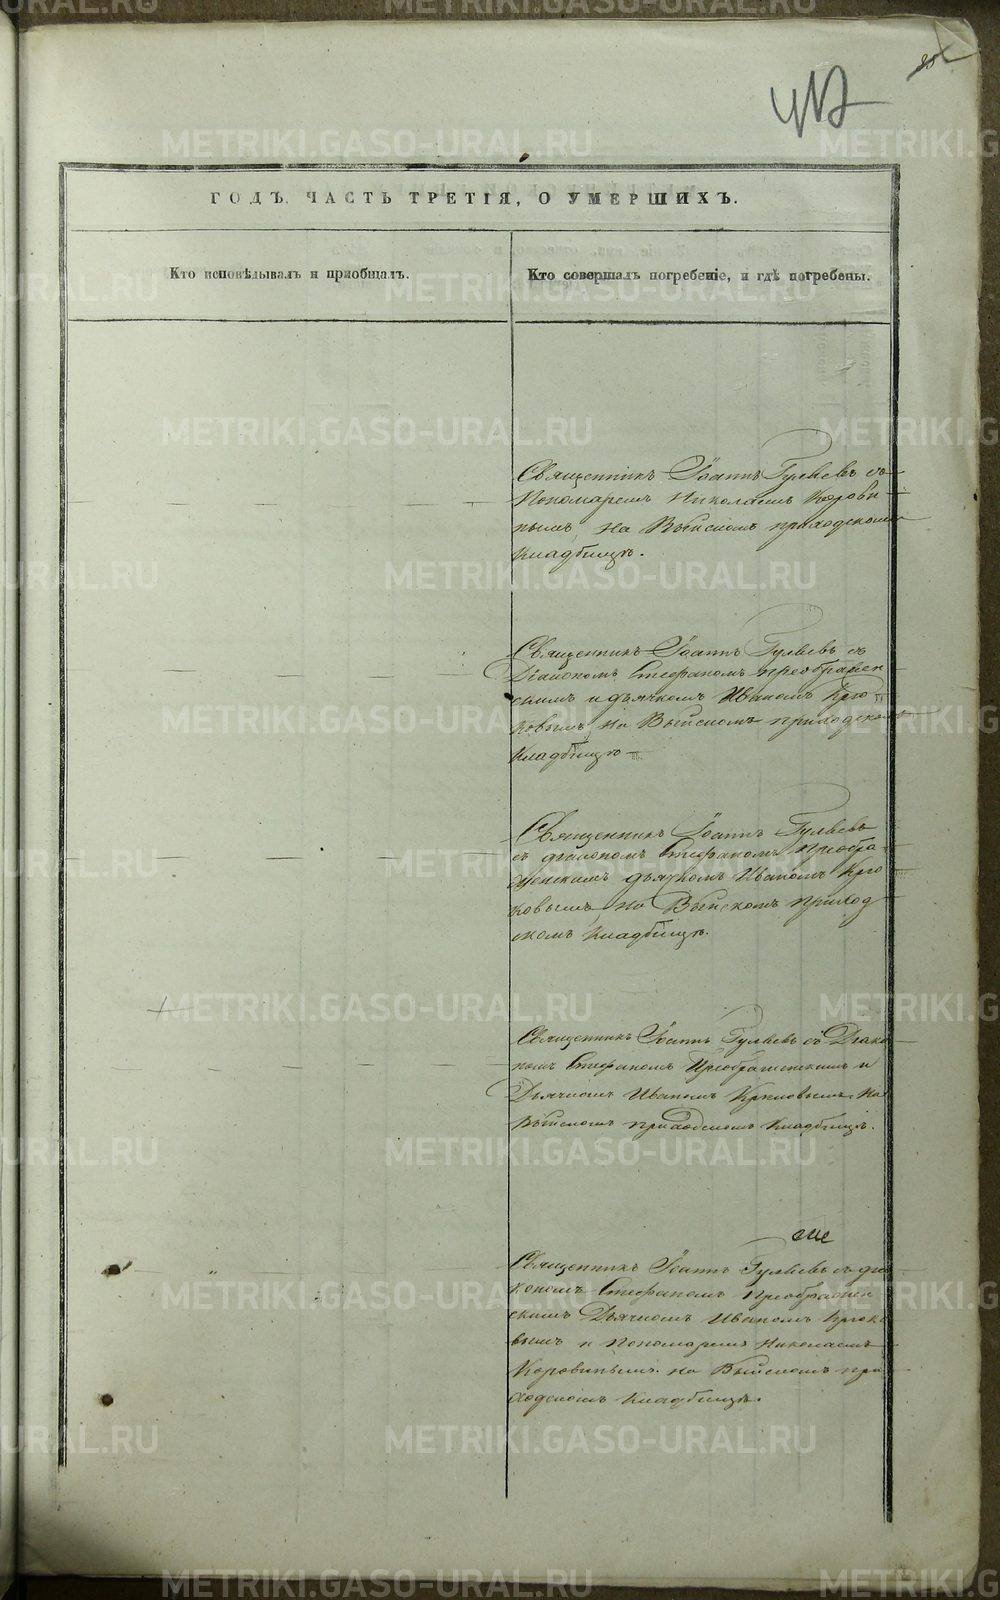 ГОДЪ. ЧАСТЬ ТРЕТІЯ, О УМЕРШИХЪ.
Кто исповѣдывалъ и пріобщалъ.
Кто совершалъ погребеніе, и гдѣ погребены.
Священникъ Іоаннъ Гуляевъ съ
Пономаремъ Николаемъ Корови-
нымъ, на Выйскомъ приходскомъ
кладбищѣ.
Священникъ Іоаннъ Гуляевъ съ
Діакономъ Стефаномъ Преображен
скимъ и дьячкомъ Иваномъ Крю-
ковымъ, на Выйскомъ приходскомъ
Кладбищѣ
Священникъ Іоаннъ Гуляевъ
съ діакономъ Стефаномъ Преобра-
женскимъ дьячкомъ Иваномъ Крю
ковымъ, на Выйскомъ приход
скомъ кладбищѣ.
Священникъ Іоаннъ Гуляевъ съ Діако
номъ Стефаномъ Преображенскимъ и
Дьячкомъ Иваномъ Крюковымъ на
Выйскомъ приходскомъ кладбищѣ.
Священникъ Іоаннъ Гуляевъ съ діа
кономъ Стефаномъ Преображен
скимъ Дьячкомъ Иваномъ Крюко
вымъ и Пономаремъ Николаемъ
Коровинымъ. на Выйскомъ при
ходскомъ кладбищѣ.
METRIKI.GASO-URAL.RU